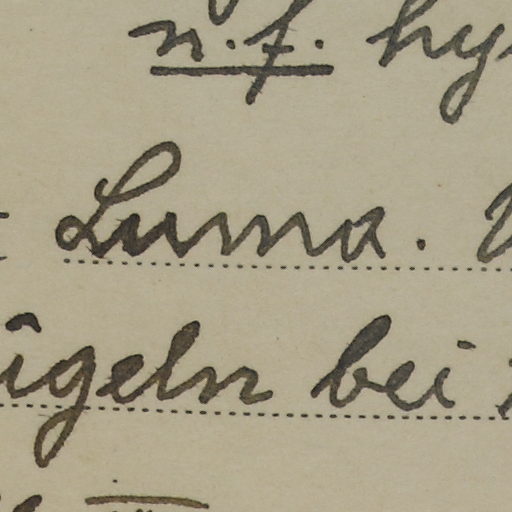 n.f. hy
Luma.
ügeln bei